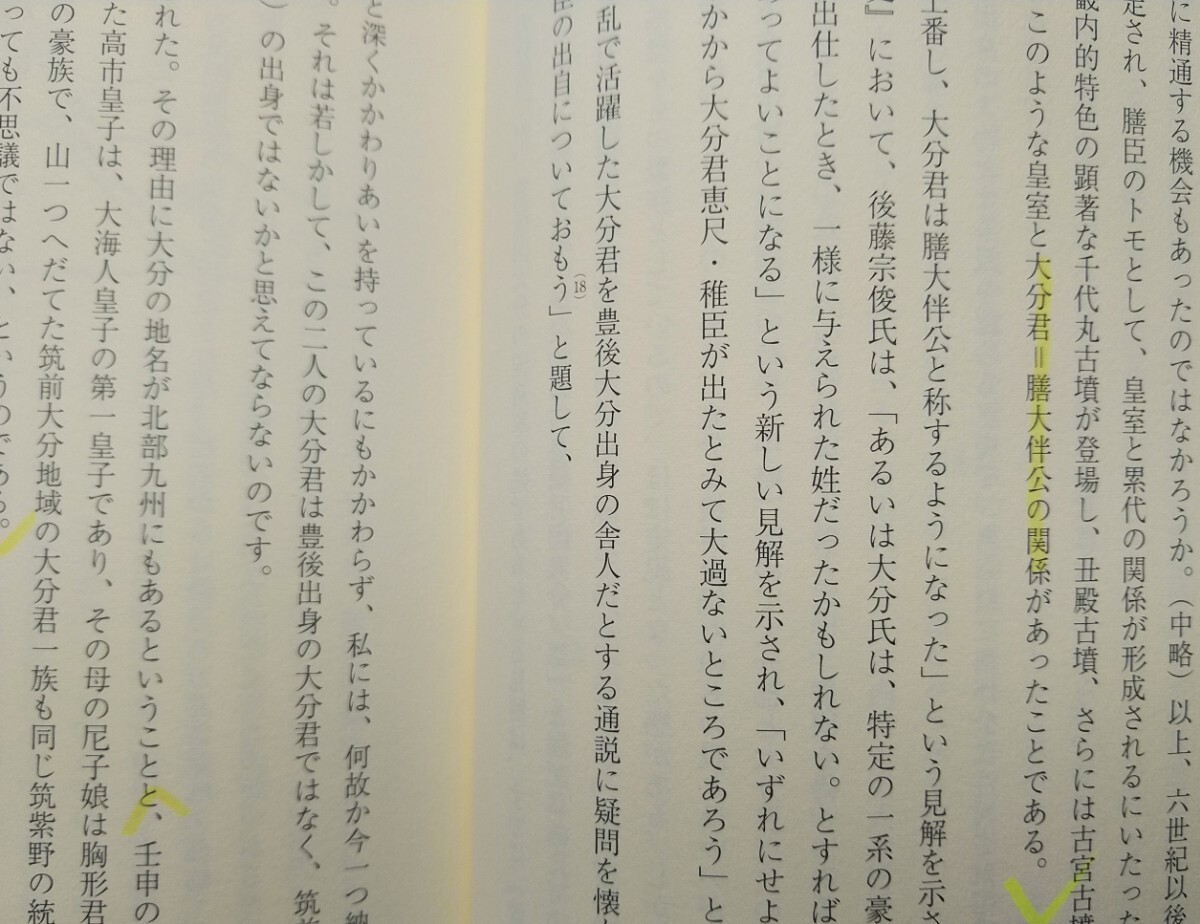 に精通する機会もあったのではなかろうか。（中略）以上、六世紀以後
定され、膳臣のトモとして、皇室と累代の関係が形成されるにいたった
畿内的特色の顕著な千代丸古墳が登場し、丑殿古墳、さらには古宮古墳
このような皇室と大分君＝膳大伴公の関係があったことである。
上番し、大分君は膳大伴公と称するようになった」という見解を示さ
』において、後藤宗俊氏は、「あるいは大分氏は、特定の一系の豪
出仕したとき、一様に与えられた姓だったかもしれない。とすれば
あってよいことになる」という新しい見解を示され、「いずれにせよ
かから大分君恵尺・稚臣が出たとみて大過ないところであろう」と
乱で活躍した大分君を豊後大分出身の舎人だとする通説に疑問を懐
臣の出自についておもう」(18)と題して、
と深くかかわりあいを持っているにもかかわらず、私には、何故か今一つ納
。それは若しかして、この二人の大分君は豊後出身の大分君ではなく、筑
）の出身ではないかと思えてならないのです。
れた。その理由に大分の地名が北部九州にもあるということと、壬申の
た高市皇子は、大海人皇子の第一皇子であり、その母の尼子娘は胸形君
の豪族で、山一つへだてた筑前大分地域の大分君一族も同じ筑紫野の統
っても不思議ではない、というのである。